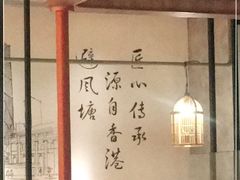 匠心传承
源自香港
避风塘